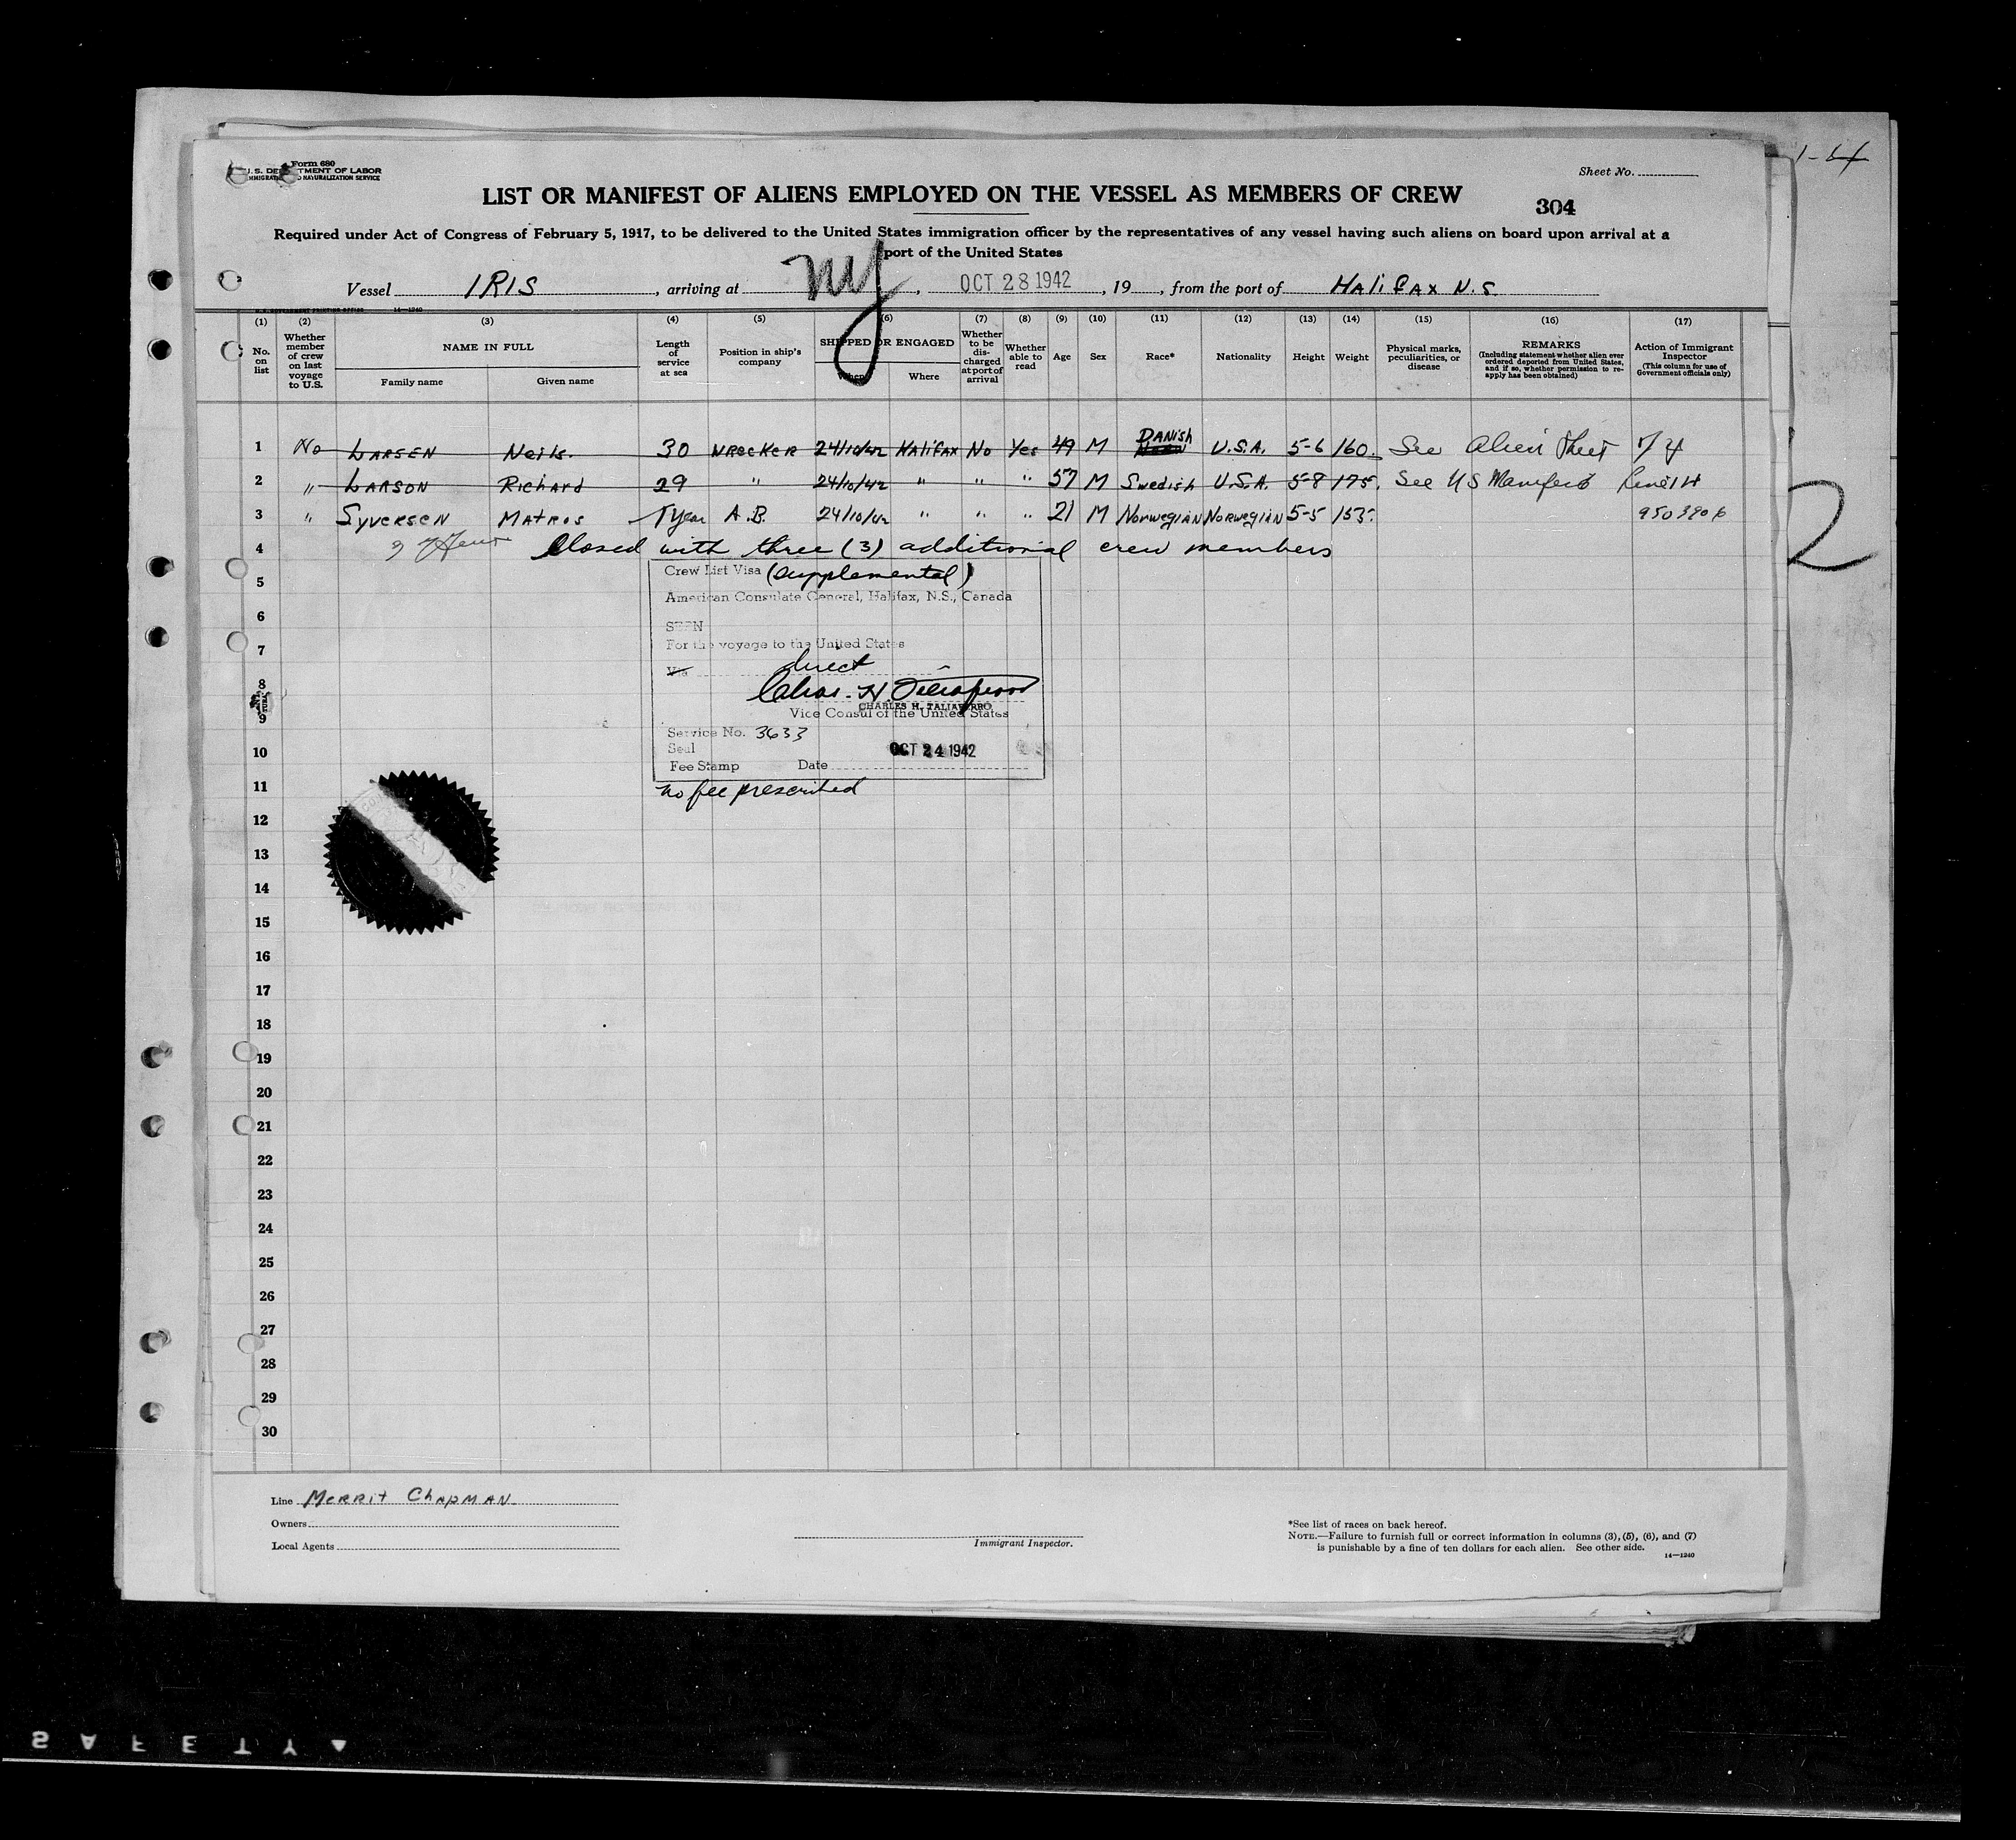 Form 680
U.S. DEPARTMENT OF LABOR
IMMIGRATION AND NATURALIZATION SERVICE
Sheet No.
LIST OR MANIFEST OF ALIENS EMPLOYED ON THE VESSEL AS MEMBERS OF CREW
304
Required under Act of Congress of February 5, 1917, to be delivered to the United States immigration officer by the representatives of any vessel having such aliens on board upon arrival at a
port of the United States
Vessel IRIS, arriving at NY, OCT 28 1942, 19, from the port of HALIFAX N.S.
(1) (2) (3) (4) (5) (6) (7) (8) (9) (10) (11) (12) (13) (14) (15) (16) (17)
No. on list
Whether member of crew on last voyage to U.S.
NAME IN FULL
Family name
Given name
Length of service at sea
Position in ship's company
SHIPPED OR ENGAGED
When
Where
Whether to be discharged at port of arrival
Whether able to read
Age
Sex
Race*
Nationality
Height
Weight
Physical marks, peculiarities, or disease
REMARKS
(Including statement whether alien ever ordered deported from United States, and if so, whether permission to re-apply has been obtained)
Action of Immigrant Inspector
(This column for use of Government officials only)
1 No LARSEN Neils. 30 WRECKER 24/10/42 HALIFAX No Yes 49 M DANISH U.S.A. 5-6 160. See Alien Sheet
2 " LARSON Richard 29 " 24/10/42 " " " 57 M Swedish U.S.A. 5-8 175. See US Manifest Line 14
3 " SYVERSEN MATROS 1 Year A.B. 24/10/42 " " " 21 M Norwegian Norwegian 5-5 153.
4 Closed with three (3) additional crew members
5
6
7
8
9
10
11
12
13
14
15
16
17
18
19
20
21
22
23
24
25
26
27
28
29
30
Crew List Visa (supplemental)
American Consulate General, Halifax, N.S., Canada
SEEN
For the voyage to the United States
Via direct
CHARLES H. TALIAFERRO
Vice Consul of the United States
Service No. 3633
Seal
OCT 24 1942
Fee Stamp Date
no fee prescribed
2
Line MERRIT CHAPMAN
Owners
Local Agents
Immigrant Inspector.
*See list of races on back hereof.
NOTE.—Failure to furnish full or correct information in columns (3), (5), (6), and (7)
is punishable by a fine of ten dollars for each alien. See other side.
14—1240
SAFETY